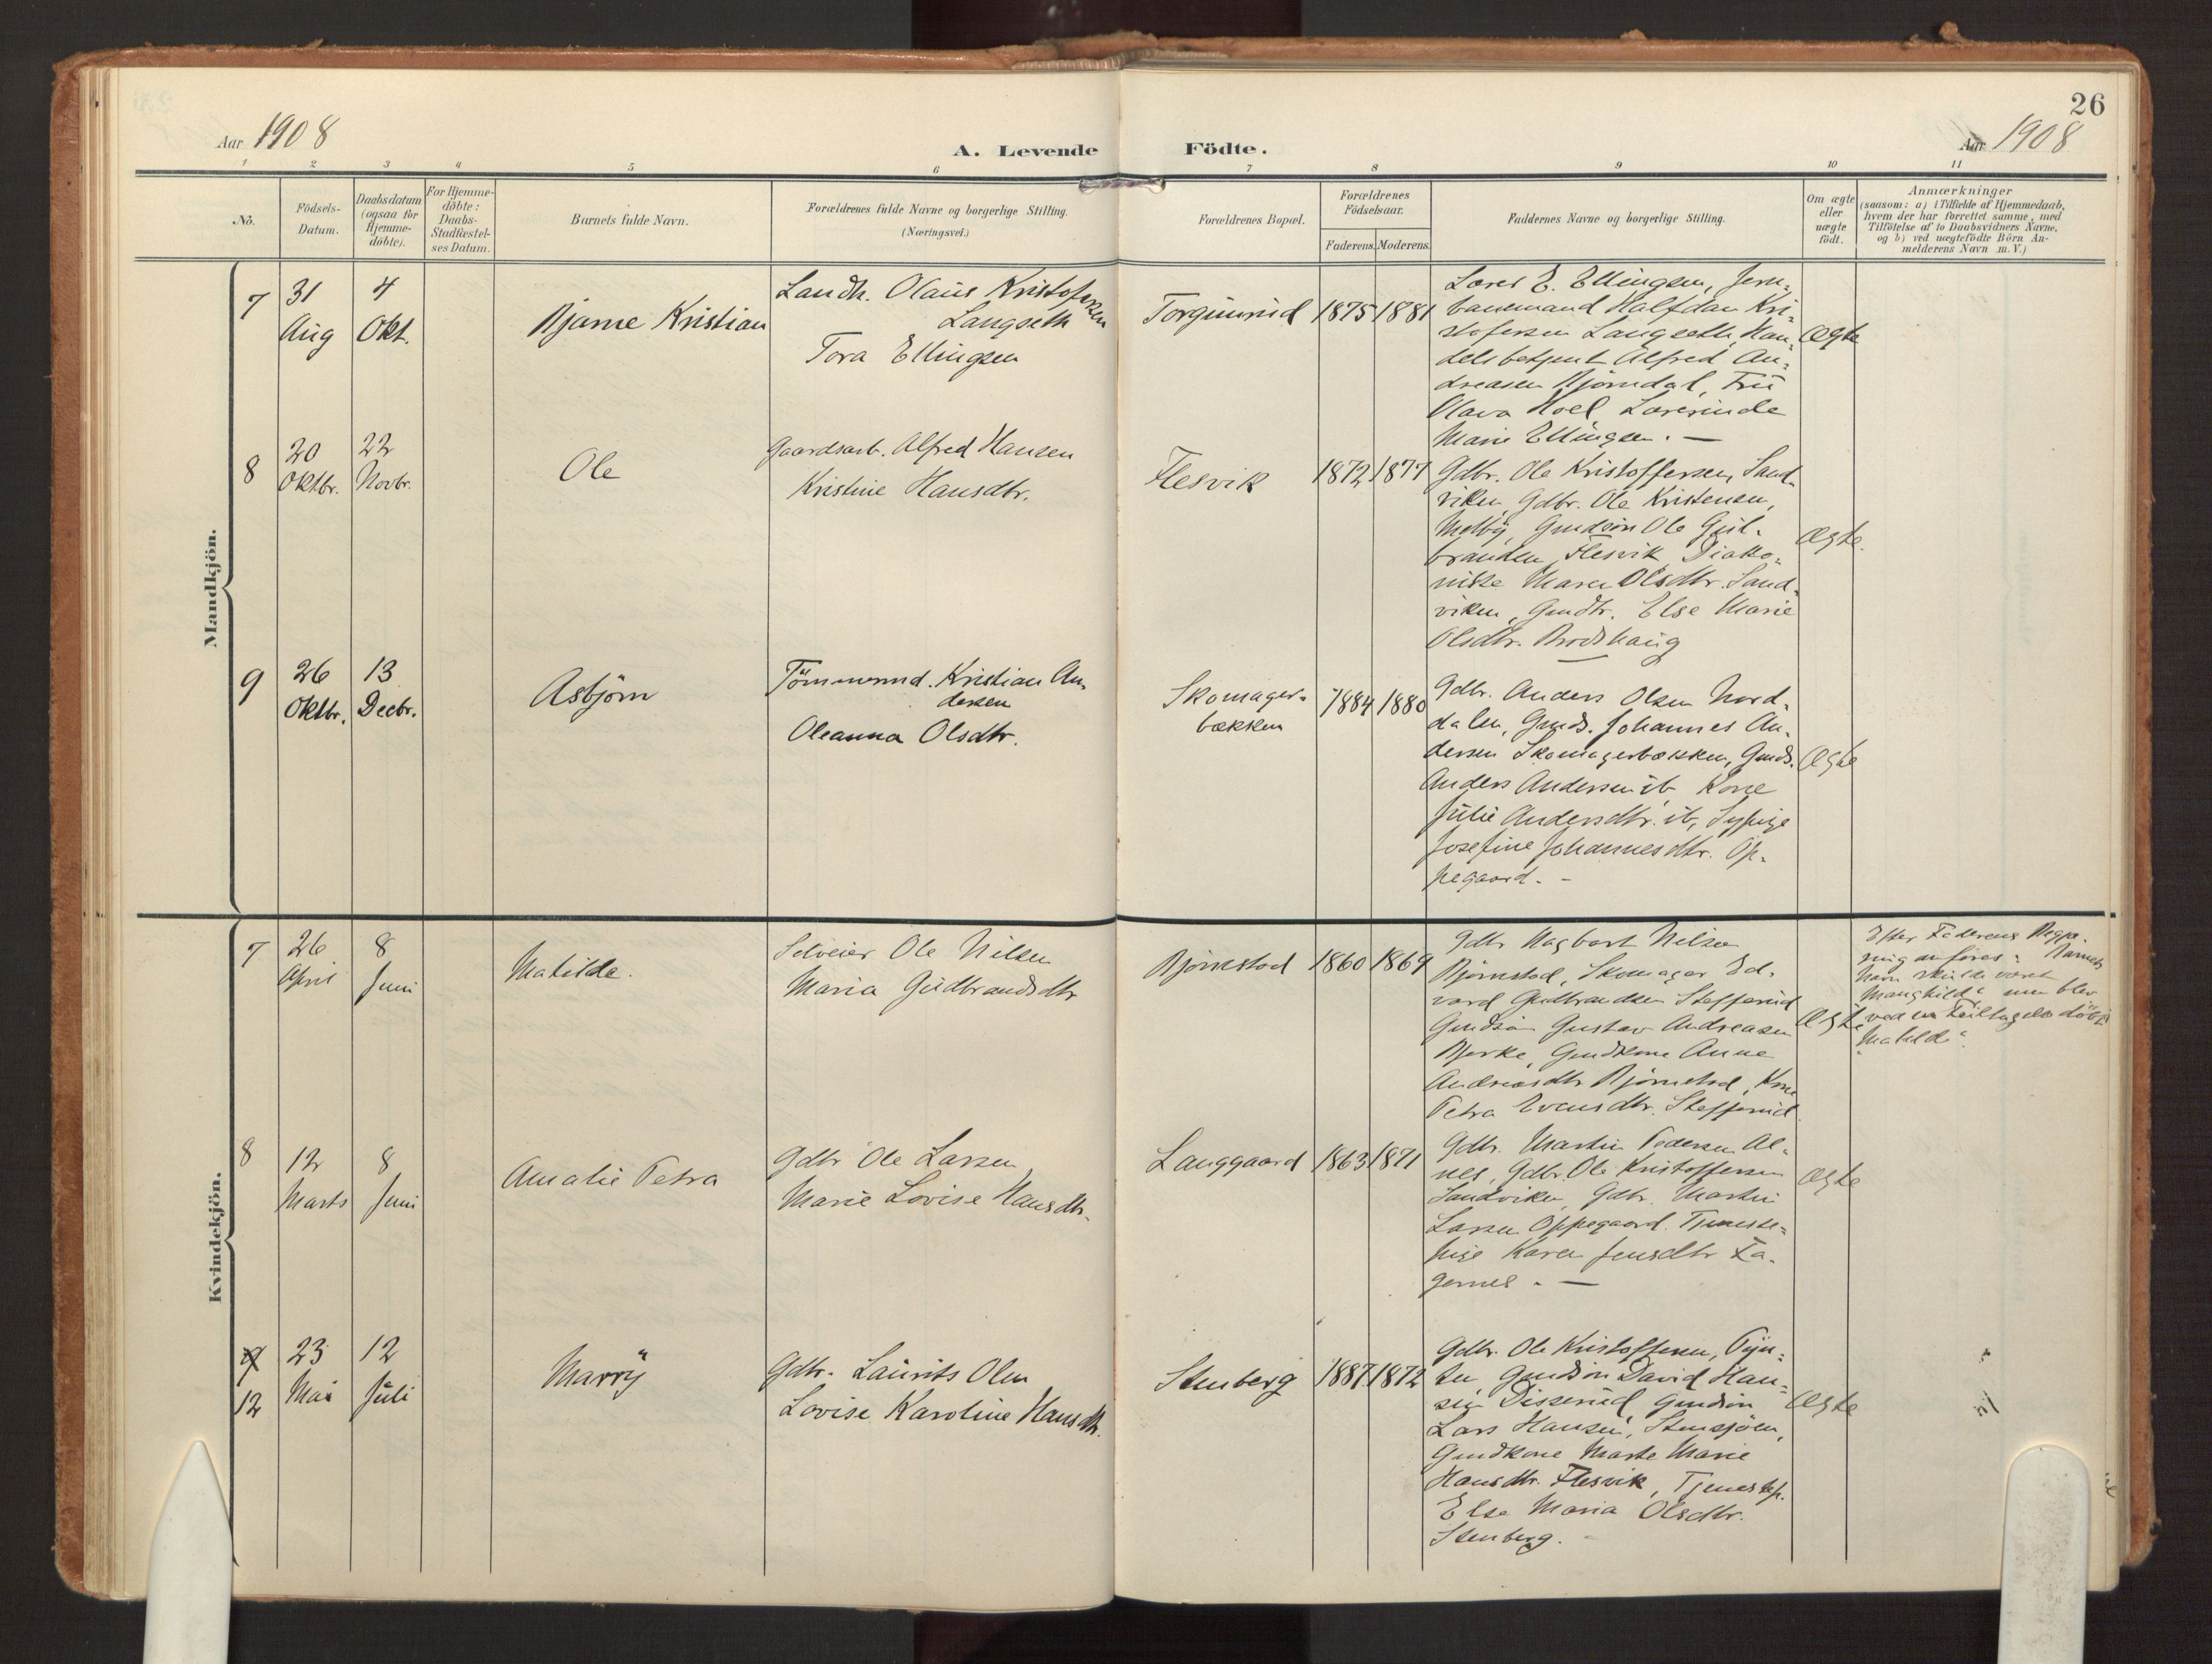 26
Aar 1908
A. Levende Födte.
Aar 1908
1 2 3 4 5 6 7 8 9 10 11
No.
Födsels-
Datum.
Daabsdatum
(ogsaa for
Hjemme-
döbte).
For Hjemme-
döbte:
Daabs-
Stadfæstel-
ses Datum.
Barnets fulde Navn.
Forældrenes fulde Navne og borgerlige Stilling.
(Næringsvei.)
Forældrenes Bopæl.
Forældrenes
Födselsaar.
Faderens. Moderens.
Faddernes Navne og borgerlige Stilling.
Om ægte
eller
uægte
födt.
Anmærkninger
(saasom: a) i Tilfælde af Hjemmedaab,
hvem der har forrettet samme, med
Tilföielse af to Daabsvidners Navne,
og b) ved uægtefödte Börn An-
melderens Navn m. V.)
Mandkjön.
7
31
Aug
4
Okt.
Bjarne Kristian
Landh. Olaus Kristofersen
Langseth
Tora Ellingsen
Torgunrud
1875 1881
Lærer E. Ellingsen, Jern-
banemand Halfdan Kri-
stofersen Langseth, Han-
delsbetjent Alfred An-
dreasen Bjørndal, Frü
Olava Hoel Lærerinde
Marie Ellingsen. —
Ægte
8
20
Oktbr.
22
Novbr.
Ole
Gaardsarb. Alfred Hansen
Kristine Hansdtr.
Flesvik
1872 1877
Gdbr. Ole Kristoffersen, Sand-
viken, Gdbr. Ole Kristensen,
Melby, Gmdsön Ole Gul-
brandsen Flesvik, Diako-
nisse Maren Olsdtr. Sand-
viken, Gmdtr. Else Marie
Olsdtr. Brodshaug
Ægte.
9
26
Oktbr.
13
Decbr.
Asbjörn
Tömmermd. Kristian An-
dersen
Oleanna Olsdtr.
Skomager-
bækken
1884 1880
Gdbr. Anders Olsen Nord-
dalen, Gmds. Johannes An-
dersen Skomagerbækken, Gmds.
Anders Andersen ib, Kone
Julie Andersdtr. ib, Sypige
Josefine Johannesdtr. Op-
pegaard. -
Ægte
Kvindekjön.
7
26
April
8
Juni
Matilde.
Selveier Ole Nilsen
Maria Gudbrandsdtr
Björnstad
1860 1869
Gdbr Hagbart Nilsen
Björnstad, Skomager Ed-
vard Gudbrandsen Stefferud
Gmdsön Gustav Andreasen
Bjerke, Gmdkone Anne
Andreasdtr Björnstad, Kone
Petra Evensdtr. Stefferud
Ægte
Efter Faderens
anføres: Barnets
Navn skulde været
Manghild" men blev
ved en Feiltagelse döbt
"Matilde".
8
12
Marts
8
Juni
Amalie Petra
Gdbr Ole Larsen
Marie Lovise Hansdtr.
Langgaard
1863 1871
Gdbr. Martin Pedersen Al-
nes, Gdbr. Ole Kristoffersen
Sandviken, Gdbr. Martin
Larsen Oppegaard. Tjeneste-
pige Karen Jensdtr Fa-
gernes. —
Ægte
9
12
23
Mai
12
Juli
Marry
Gdbr. Laurits Olsen
Lovise Karoline Hansdtr.
Stenberg
1887 1872
Gdbr. Ole Kristoffersen,
Gmdsön David Han-
sen Disserud, Gmdsön
Lars Hansen, Stensjöen,
Gmdkone Marte Marie
Hansdtr. Flesvik, Tjenestep.
Else Maria Olsdtr.
Stenberg. -
Ægte